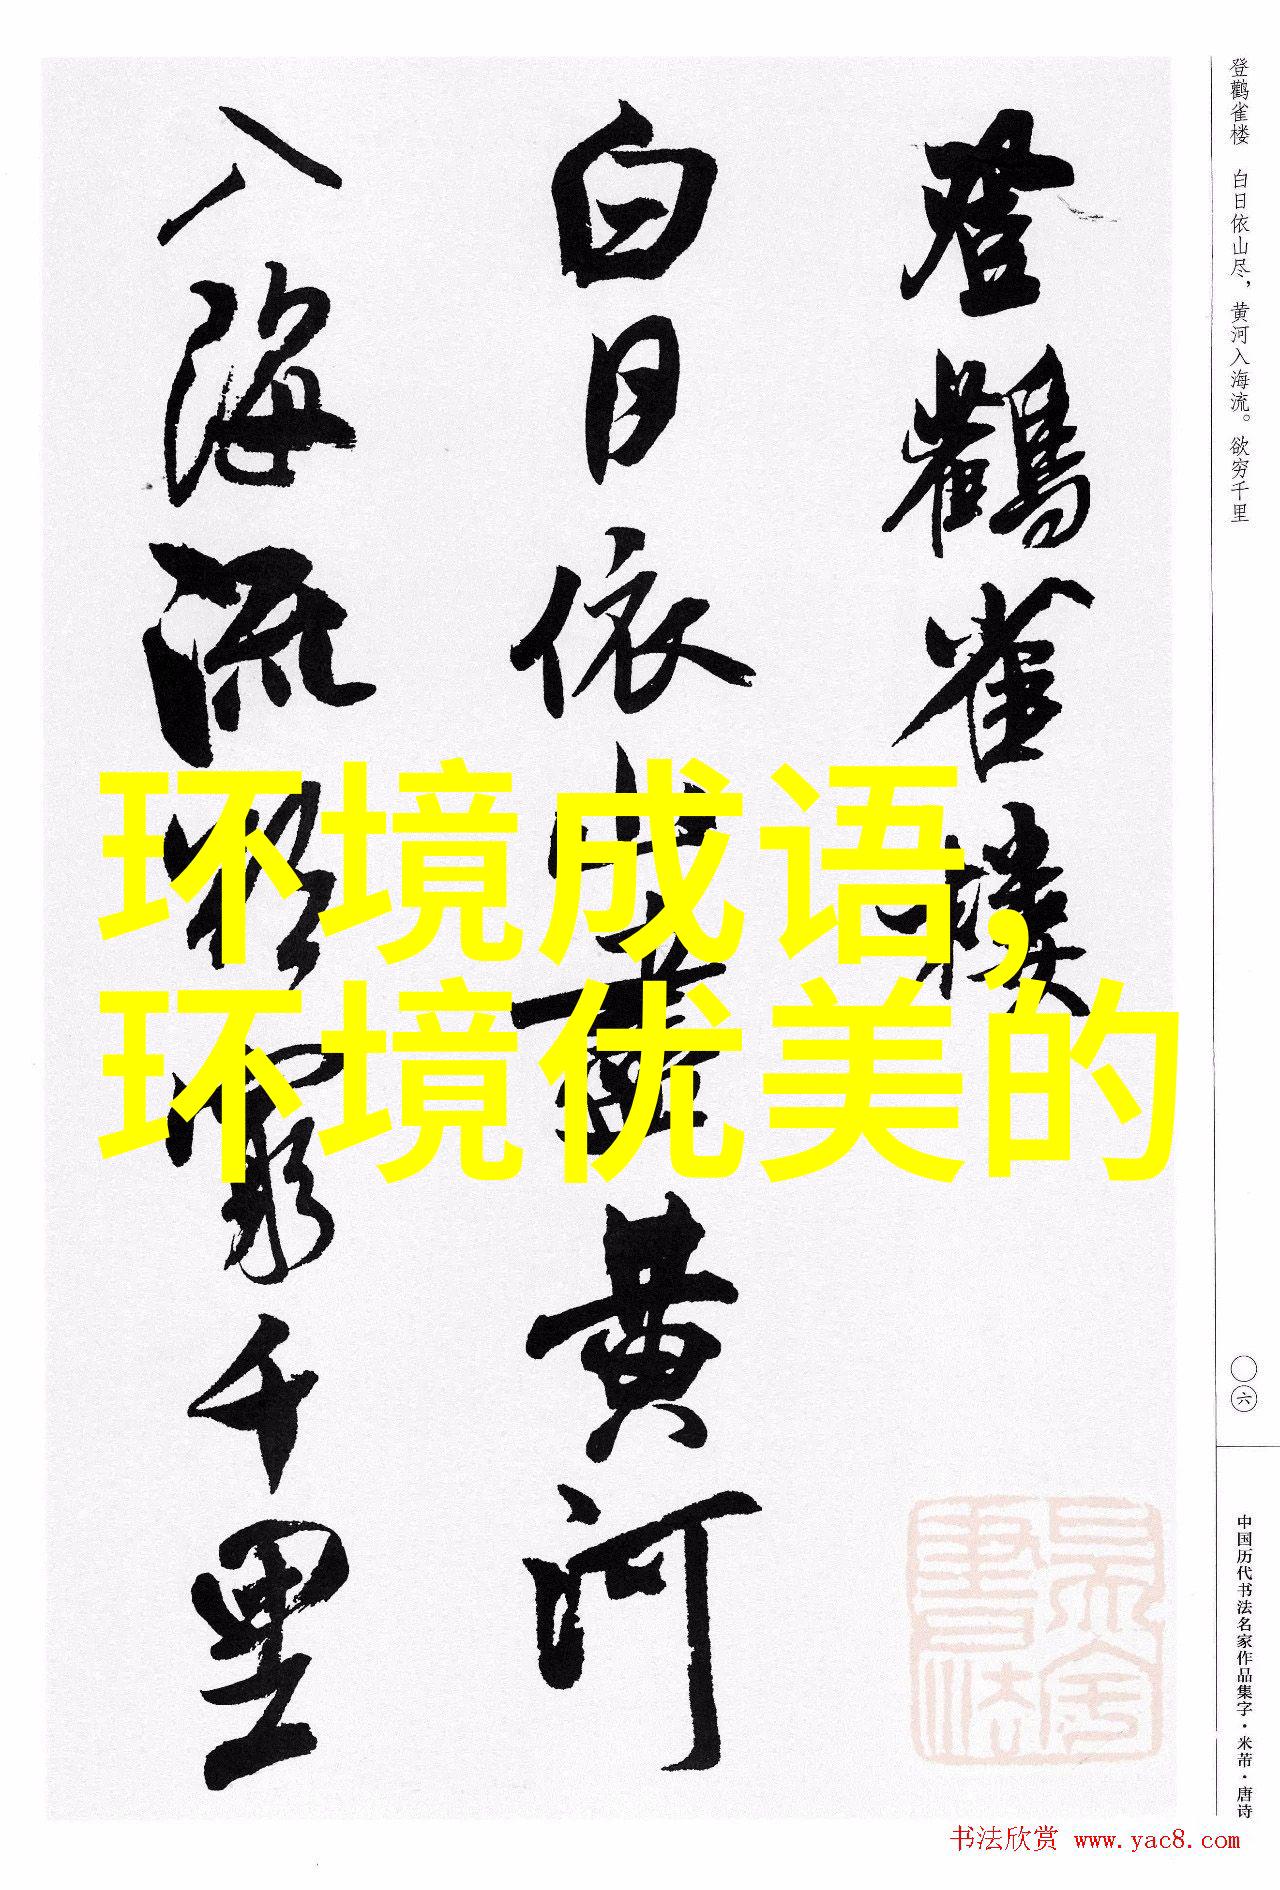 登鹳雀楼 白日依山尽，黄河入海流。欲穷千里
登鸛雀樓
白日依山盡黄河
入海流欲窮千里
环境成语，
环境优美的
〇六
中国历代书法名家作品集字·米芾·唐诗
书法欣赏 www.yac8.com